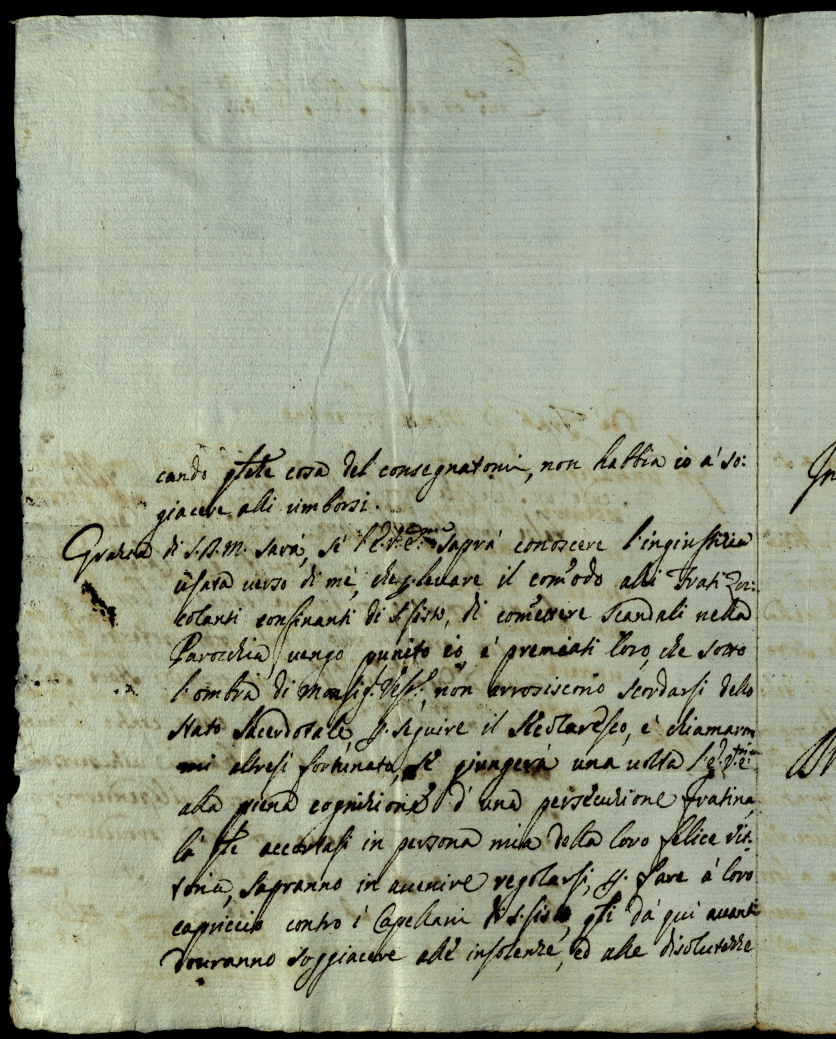 cando qlche cosa del consegnatomi, non habbia io a' so:
giacere alli rimborsi.
Grazia di S.R.M. sarà, sè l'E.V. saprà conoscere l'ingiustizia
usata verso di mè, che p. levare il comodo alli Frati Zoc:
colanti confinanti di S. Sisto, di comettere scandali nella
Parocchia vengo punito io, e' premiati loro, che sotto
l'ombra di Monsig.r, non arrosiscono scordarsi dello
stato sacerdotale, p. seguire il secolaresco, e' chiamarom
mi altresì fortunato, sè giungerà una volta l'
alla piena cognizione d'una persecuzione fratina
la qle accertasi in persona mia della loro felice vit:
toria, sapranno in avenire regolarsi, p. fare à loro
capriccio contro i Capellani di S. Sisto, qli dà quì avanti
douranno soggiacere alle insolenze, ed alle disolutezze
In